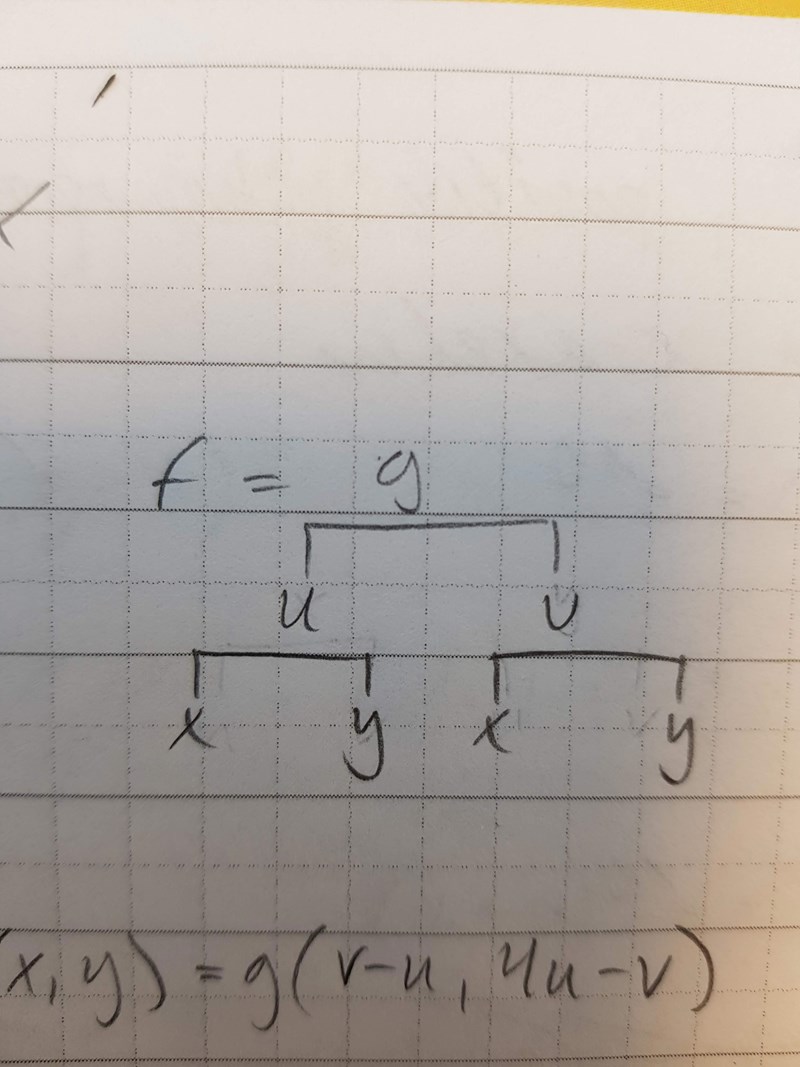 f = g
u v
x y x y
(x, y) = g(v-u, 4u-v)